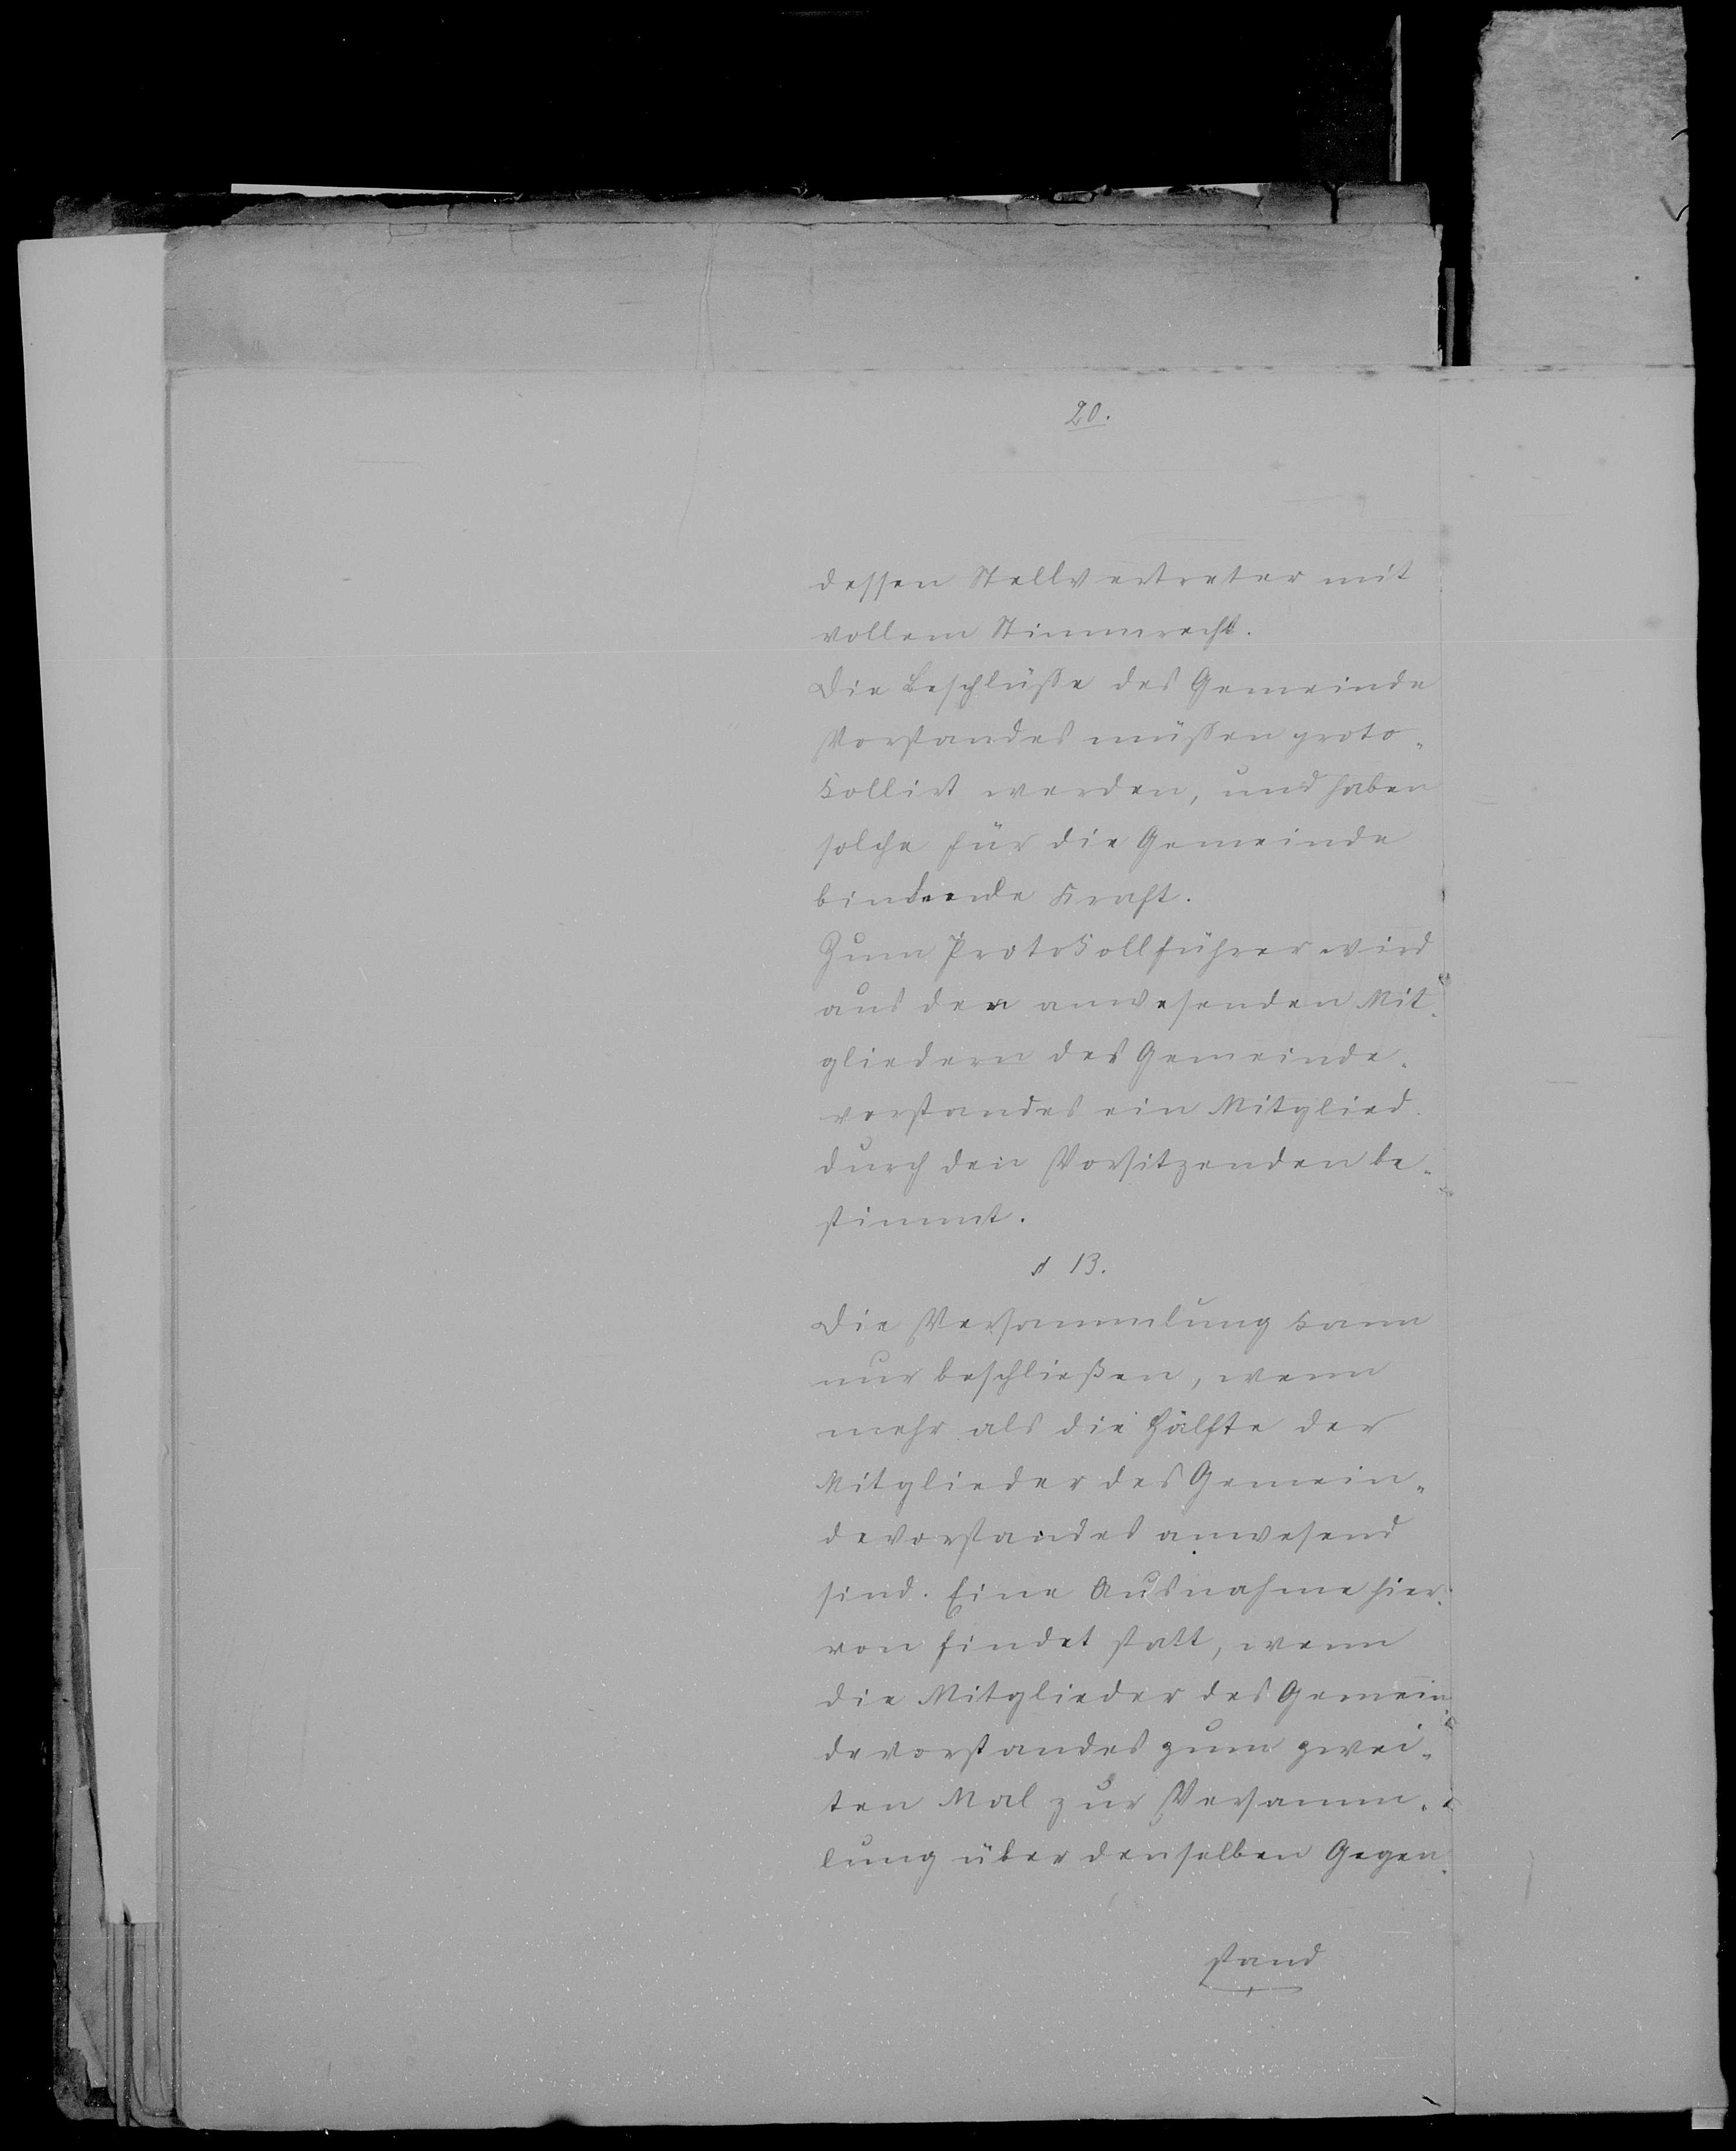 20.
dessen Stellvertreter mit
vollem Stimmrecht.
Die Beschlüsse des Gemeinde
Vorstandes müssen proto-
kollirt werden, und haben
solche für die Gemeinde
bindende Kraft.
Zum Protokollführer wird
aus den anwesenden Mit-
gliedern des Gemeinde-
vorstandes ein Mitglied
durch den Vorsitzenden be-
stimmt.
§ 13.
Die Versammlung kann
nur beschließen, wenn
mehr als die Hälfte der
Mitglieder des Gemein-
devorstandes anwesend
sind. Eine Ausnahme hier-
von findet statt, wenn
die Mitglieder des Gemein-
devorstandes zum zwei-
ten Mal zur Versamm-
lung über denselben Gegen-
stand